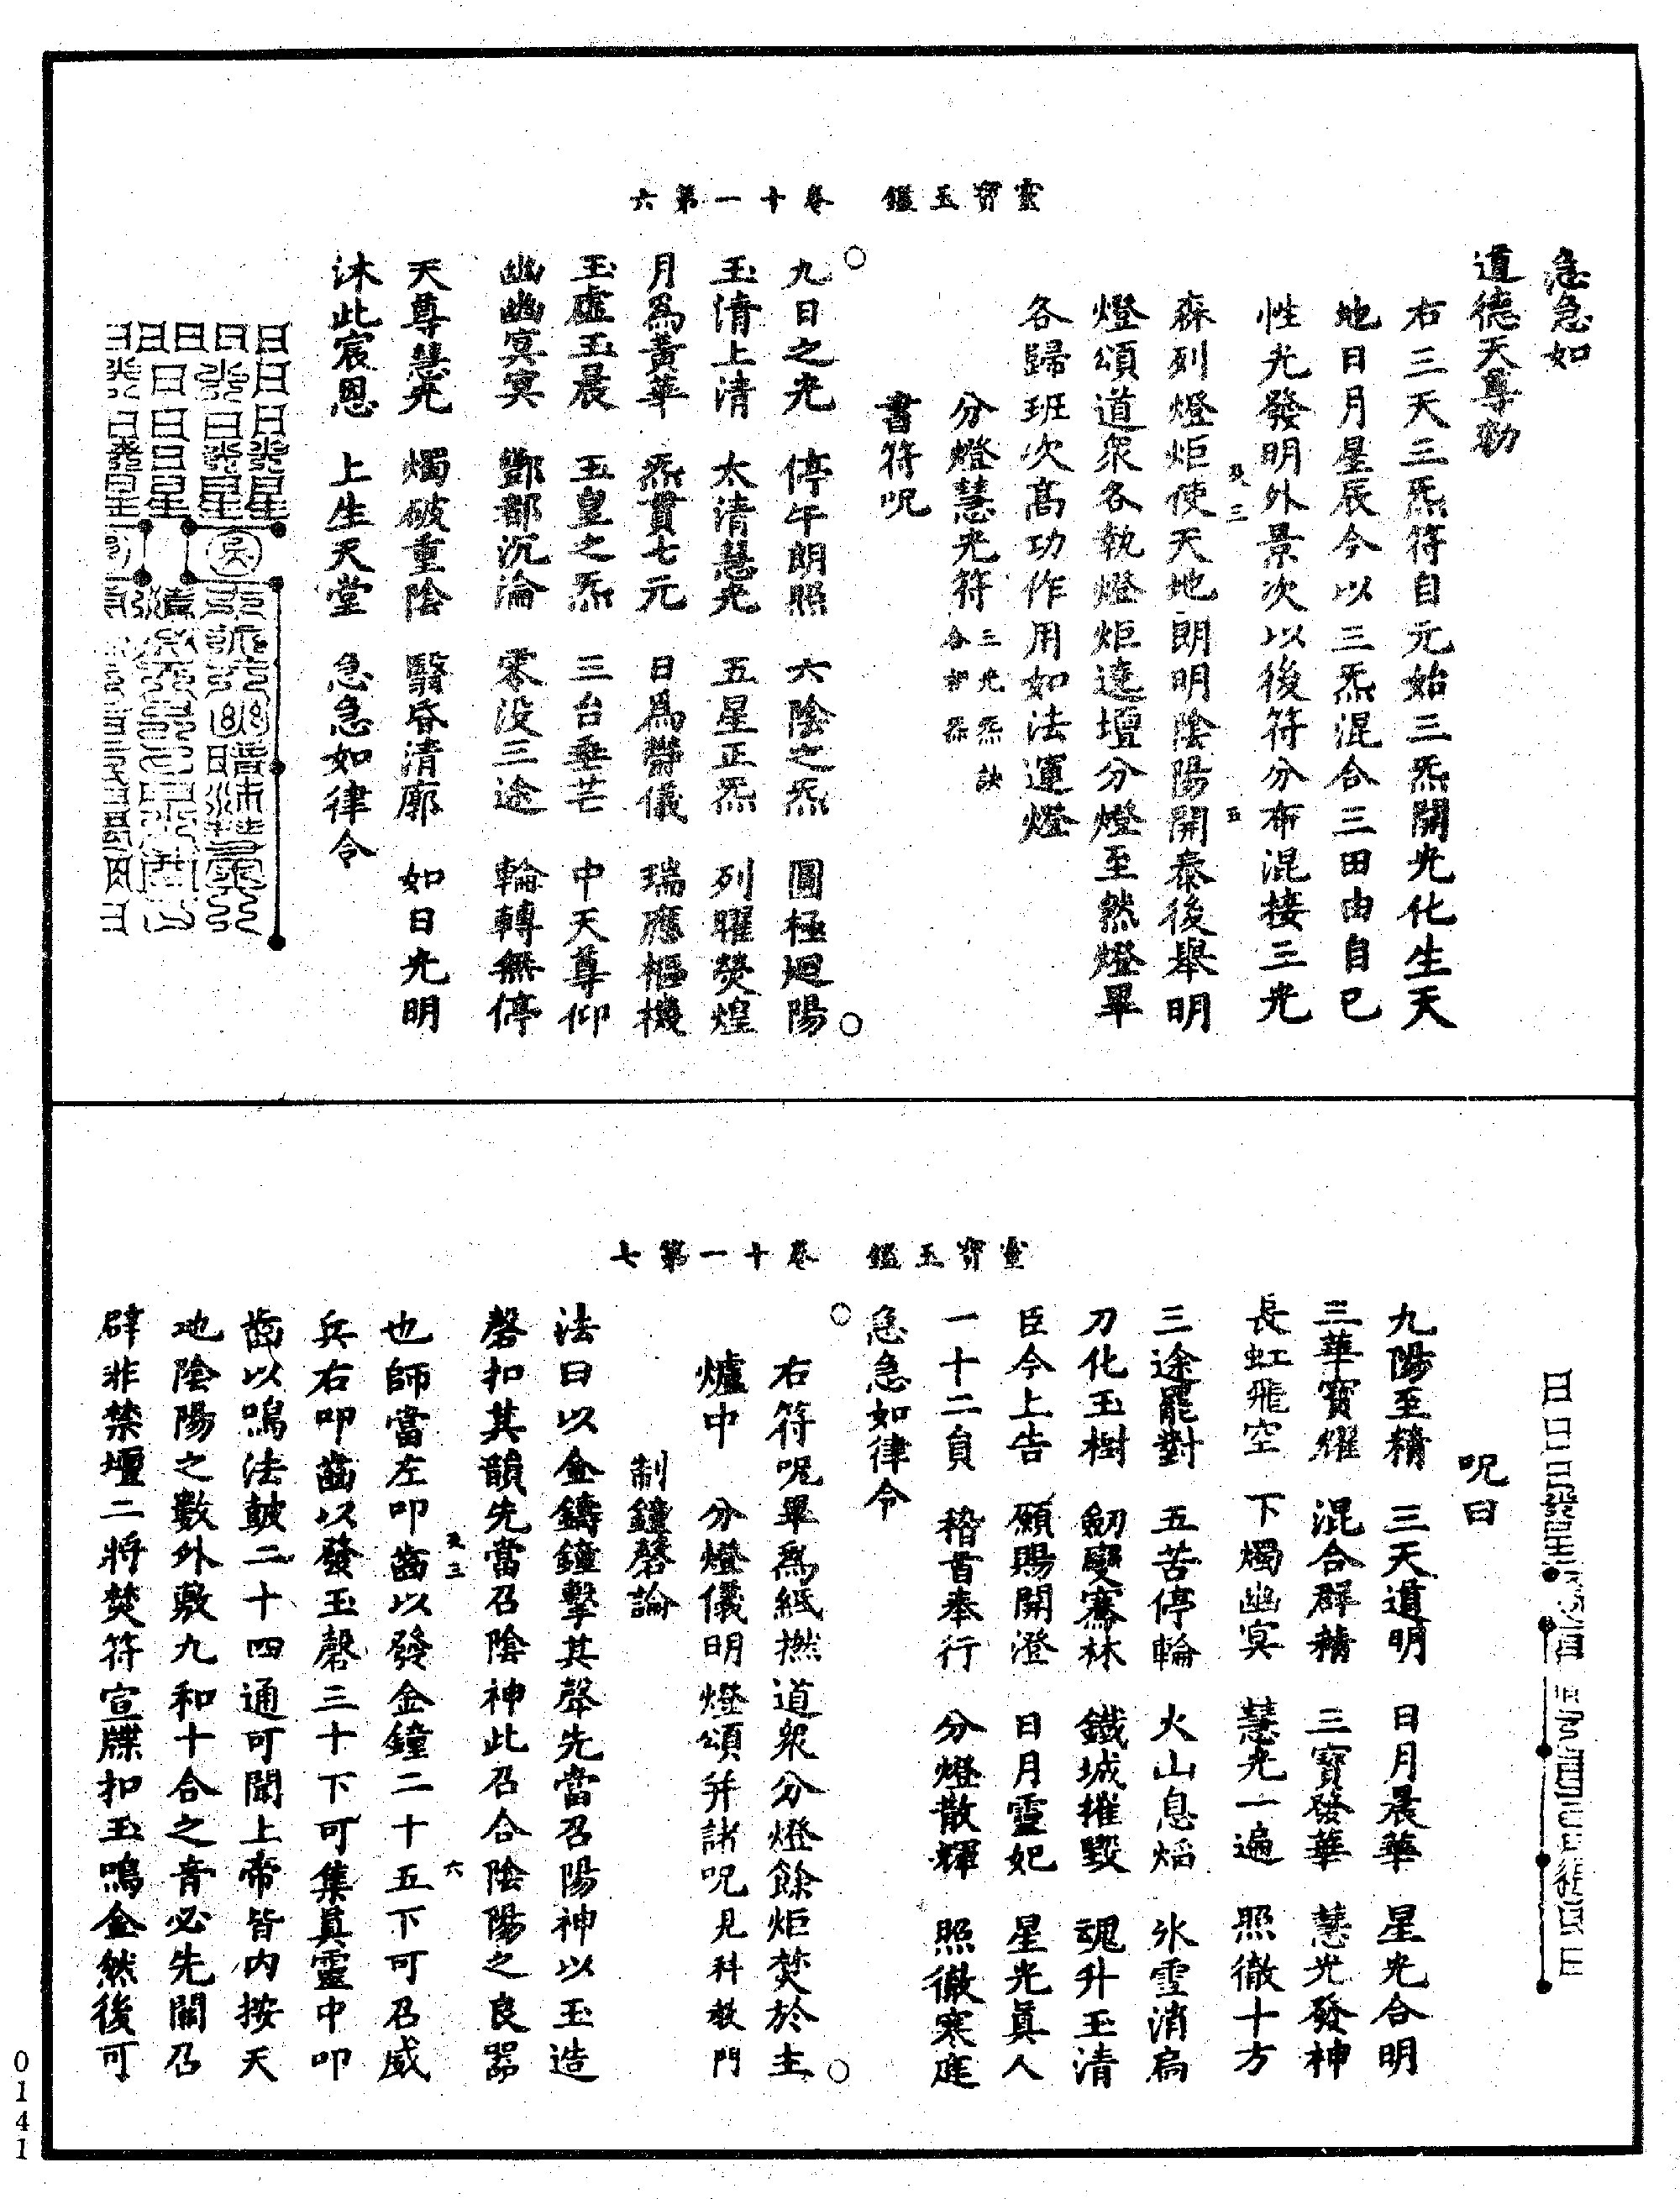 靈寶玉鑑 卷十一第六
急急如
道德天尊勅
右三天三炁符自元始三炁開光化生天
地日月星辰今以三炁混合三田由自己
性光發明外景次以後符分布混接三光
森列燈炬使天地朗明陰陽開泰後舉明
燈頌道衆各執燈炬遶壇分燈至然燈畢
各歸班次高功作用如法運燈
分燈慧光符 三光炁訣
書符呪
九日之光 停午朗照 六陰之炁 圓極廻陽
玉清上清 太清慧光 五星正炁 列曜熒煌
月爲黃華 炁貫七元 日爲鬱儀 瑞應樞機
玉虛玉晨 玉皇之炁 三台垂芒 中天尊仰
幽幽冥冥 酆都沉淪 零没三途 輪轉無停
天尊慧光 燭破重陰 翳昏清廓 如日光明
沐此宸恩 上生天堂 急急如律令
靈寶玉鑑 卷十一第七
呪曰
九陽至精 三天道明 日月晨華 星光合明
三華寶耀 混合群精 三寶發華 慧光發神
長虹飛空 下燭幽冥 慧光一遍 照徹十方
三途罷對 五苦停輪 火山息焰 氷雪消扃
刀化玉樹 劒變騫林 鐵城摧毀 魂升玉清
臣今上告 願賜開澄 日月靈妃 星光眞人
一十二員 稽首奉行 分燈散輝 照徹寒庭
急急如律令
右符呪畢爲紙撚道衆分燈餘炬焚於主
爐中 分燈儀明燈頌并諸呪見科教門
制鐘磬論
法曰以金鑄鐘擊其聲先當召陽神以玉造
磬扣其韻先當召陰神此召合陰陽之良器
也師當左叩齒以發金鐘二十五下可召威
兵右叩齒以發玉磬三十下可集眞靈中叩
齒以鳴法鼓二十四通可聞上帝皆内按天
地陰陽之數外敷九和十合之音必先關召
辟非禁壇二將焚符宣牒扣玉鳴金然後可
0141